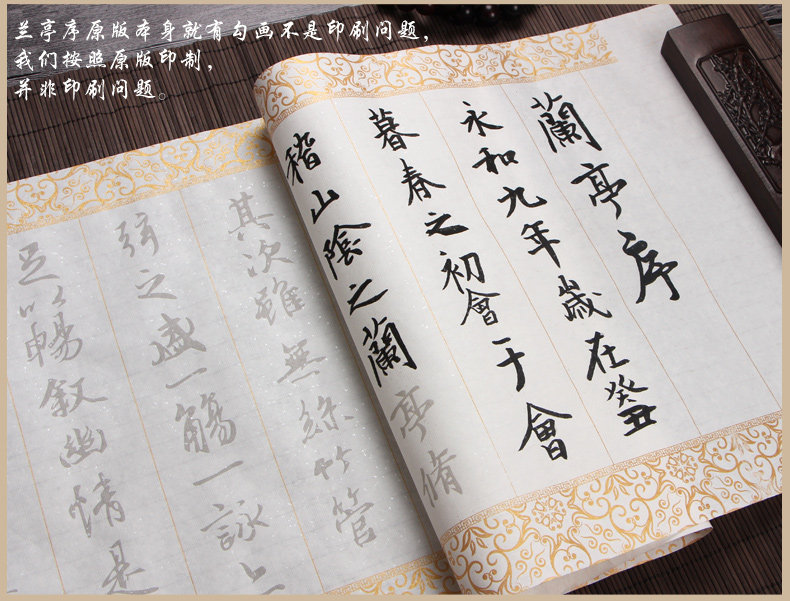 兰亭序原版本身就有勾画不是印刷问题，
我们按照原版印制，
并非印刷问题。
蘭亭序
永和九年歲在癸丑
暮春之初會于會
稽山陰之蘭亭脩
其次雖無絲竹管
弦之盛一觴一詠上
足以暢敘幽情是